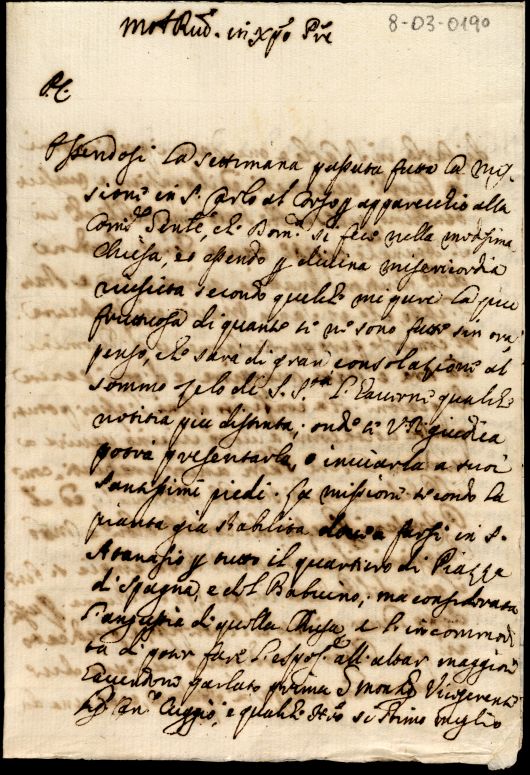 Molt Rud.e in xpo Pre
8-03-0190
P.C.
Essendosi la settimana passata fatta la mis
sione in S. Carlo al Corso p apparecchio alla
Com.e Gen.le, che Dom.ca si fece nella medesima
Chiesa, et essendo p divina misericordia
riuscita secondo quello che mi pare la più
fruttuosa di quante se ne sono fatte sin ora,
penso, che sarà di gran consolazione al
sommo zelo di S. S.tà l'haverne qualche
notitia più distinta; onde se V.R. giudica
potrà presentarla, o inviarla a suoi
Santissimi piedi. La missione secondo la
pianta già stabilita doveva farsi in S.
Atanasio p tutto il quartiero di Piazza
di Spagna, e del Babuino; ma considerata
l'angustia di quella Chiesa, e l'incommodi
tà di poter fare l'espos.e all'altar maggiore
havendone parlato prima a Mons.re Vicegerente
e qualche si stimò meglio